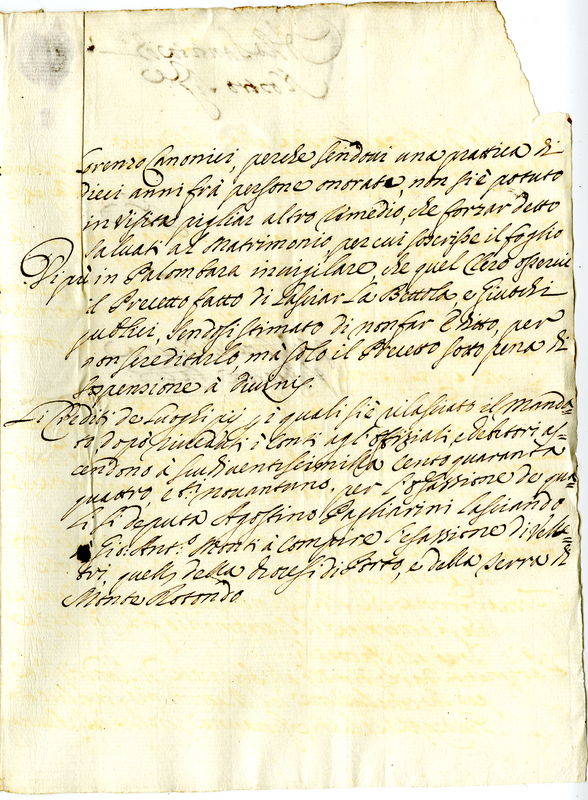 Lorenzo Canonici, perche sendoui una prattica di
dieci anni frà persone onorate, non si è potuto
in Visita pigliar altro rimedio, che forzar detto
Saluati al Matrimonio, per cui scrisse il foglio
Di più in Palombara inuigilare, che quel Clero osserui
il Precetto fatto di lasciar la Bettola, e Giuochi
publici, sendosi stimato di non far Editto, per
non screditarlo, mà solo il Precetto sotto pena di
sospensione à Diuinis.
Li Crediti de Luoghi pij, p i quali si è rilasciato il Manda=
to dopo riueduti i Conti agl'offiziali, e debitori as=
cendono à scudi uentiseimilla Cento quaranta
quattro, e b. nouantuno, per l'esazzione de qua=
li si deputa Agostino Pagliarini lasciando
à Gio: Ant.o Monti à compire l'esazzione di Velle=
tri, quella della Diocesi di Porto, e della Terra di
Monte Rotondo